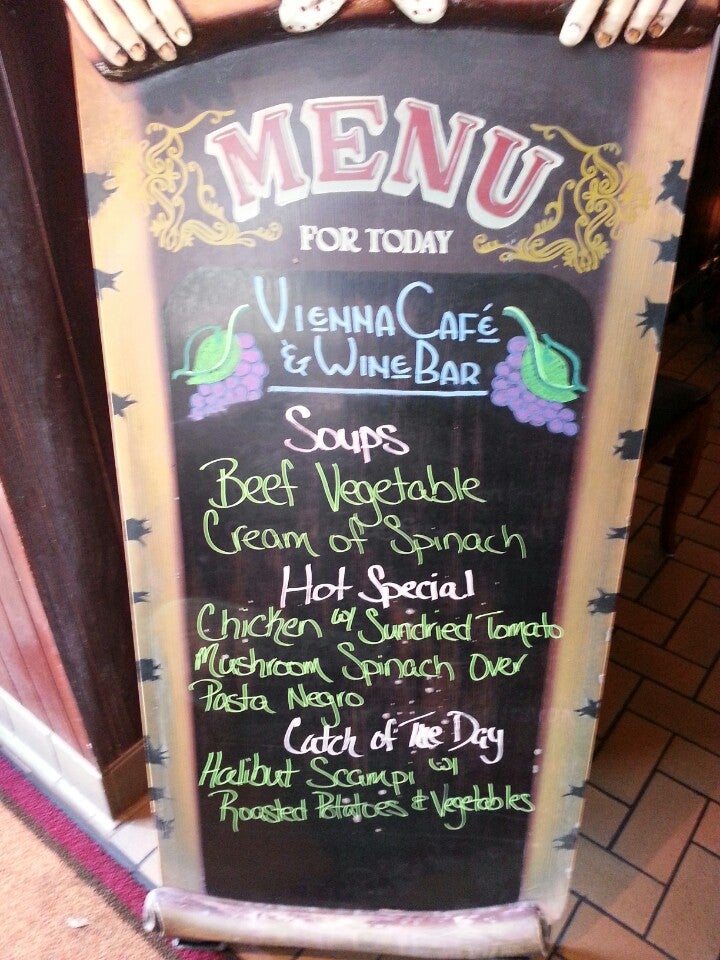 MENU
FOR TODAY
VIENNA CAFÉ
& WINE BAR
Soups
Beef Vegetable
Cream of Spinach
Hot Special
Chicken w/ Sundried Tomato
Mushroom Spinach Over
Pasta Negro
Catch of The Day
Halibut Scampi w/
Roasted Potatoes & Vegetables